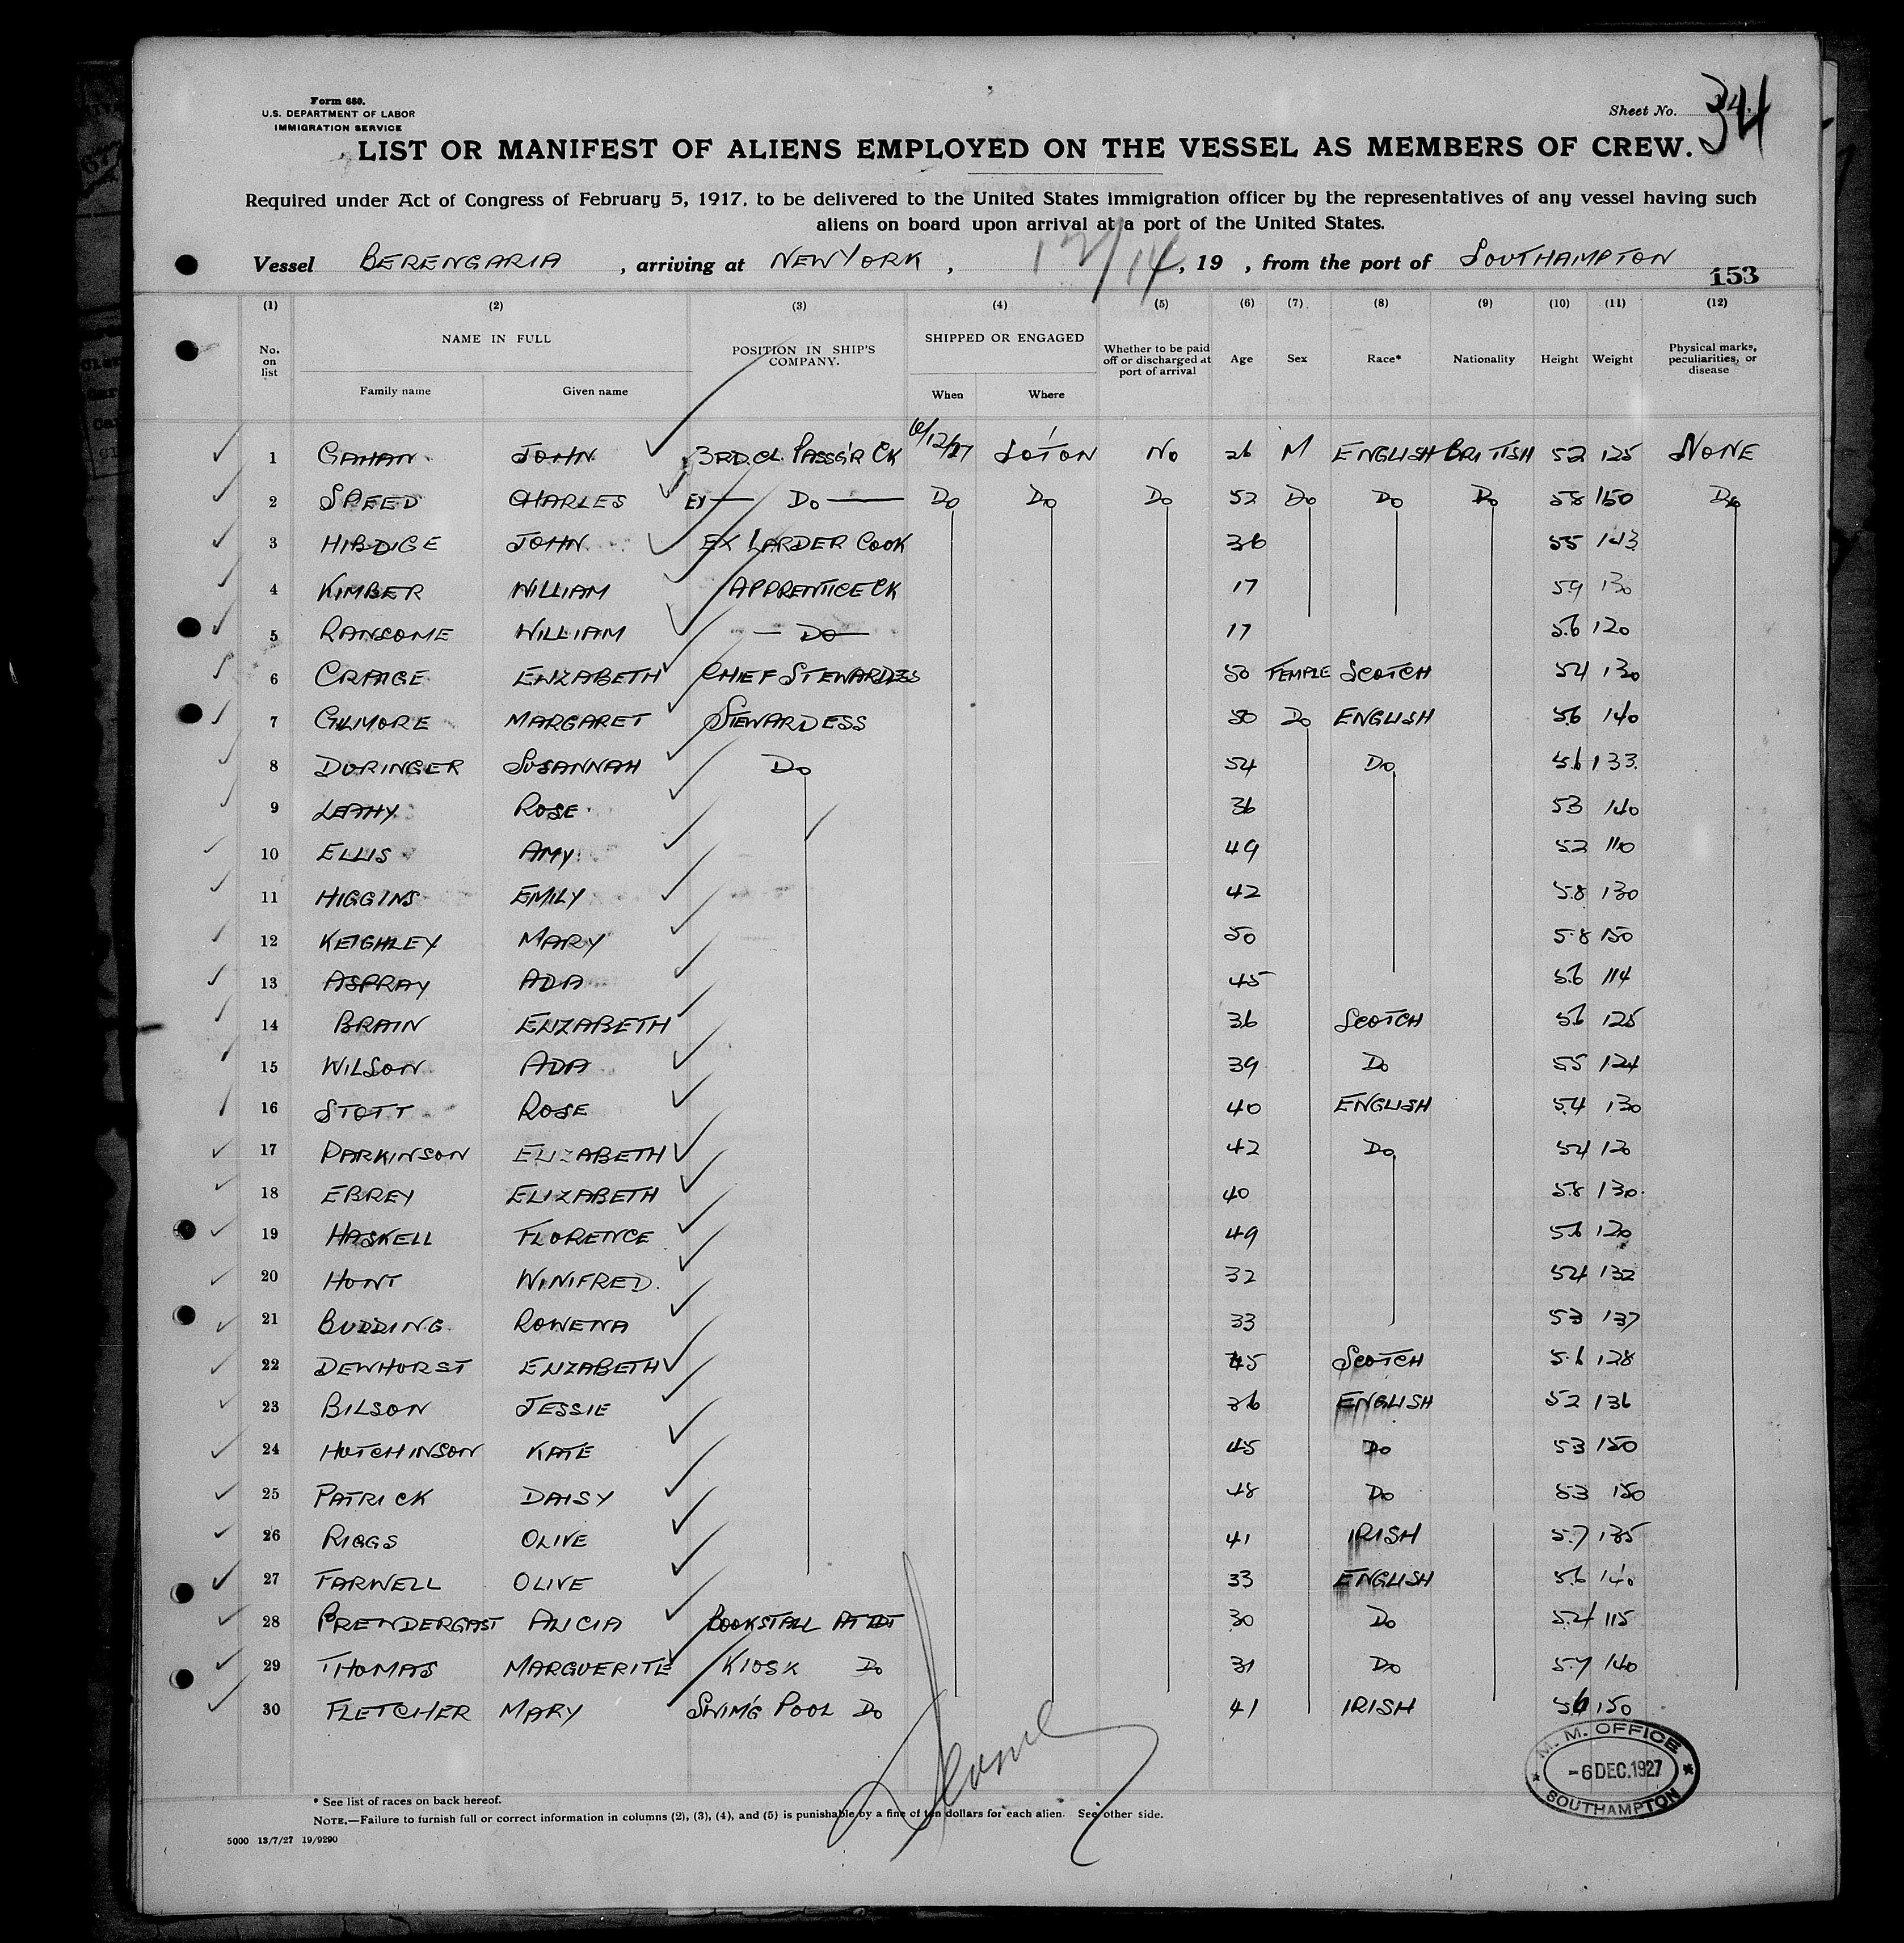 Form 680.
U.S. DEPARTMENT OF LABOR
IMMIGRATION SERVICE
Sheet No. 34
LIST OR MANIFEST OF ALIENS EMPLOYED ON THE VESSEL AS MEMBERS OF CREW.
Required under Act of Congress of February 5, 1917, to be delivered to the United States immigration officer by the representatives of any vessel having such
aliens on board upon arrival at a port of the United States.
Vessel BERENGARIA , arriving at NEW YORK , 12/14, 19 , from the port of SOUTHAMPTON
153
(1) (2) (3) (4) (5) (6) (7) (8) (9) (10) (11) (12)
No. on list NAME IN FULL POSITION IN SHIP'S COMPANY. SHIPPED OR ENGAGED Whether to be paid off or discharged at port of arrival Age Sex Race* Nationality Height Weight Physical marks, peculiarities, or disease
Family name Given name When Where
1 GAHAN JOHN 3RD.CL. PASSG'R CK 6/12/27 SO'TON No 26 M ENGLISH BRITISH 52 125 NONE
2 SPEED CHARLES EX — Do — Do Do Do 52 Do Do Do 58 150 Do
3 HIBDIGE JOHN EX LARDER COOK 36 55 143
4 KIMBER WILLIAM APPRENTICE CK 17 59 130
5 RANSOME WILLIAM — Do — 17 5.6 120
6 CRAIGE ELIZABETH CHIEF STEWARDESS 50 FEMALE SCOTCH 54 130
7 GILMORE MARGARET STEWARDESS 50 Do ENGLISH 56 140
8 DURINGER SUSANNAH Do 54 Do 5.6 133
9 LEAHY ROSE 36 53 140
10 ELLIS AMY 49 52 110
11 HIGGINS EMILY 42 5.8 130
12 KEIGHLEY MARY 50 5.8 150
13 ASPRAY ADA 45 5.6 114
14 BRAIN ELIZABETH 36 SCOTCH 56 125
15 WILSON ADA 39 Do 55 124
16 STOTT ROSE 40 ENGLISH 5.4 130
17 PARKINSON ELIZABETH 42 Do 54 120
18 EBREY ELIZABETH 40 5.8 130
19 HASKELL FLORENCE 49 5.6 120
20 HUNT WINIFRED. 32 54 132
21 BUDDING ROWENA 33 53 137
22 DEWHURST ELIZABETH 45 SCOTCH 5.6 128
23 BILSON JESSIE 36 ENGLISH 52 136
24 HUTCHINSON KATE 45 Do 53 150
25 PATRICK DAISY 48 Do 53 150
26 RIGGS OLIVE 41 IRISH 5.7 135
27 FARWELL OLIVE 33 ENGLISH 5.6 140
28 PRENDERGAST ALICIA BOOKSTALL ATTDT 30 Do 5.4 115
29 THOMAS MARGUERITE KIOSK Do 31 Do 5.7 140
30 FLETCHER MARY SWIM'G POOL Do 41 IRISH 56 150
M. M. OFFICE
-6 DEC.1927
SOUTHAMPTON
* See list of races on back hereof.
NOTE.—Failure to furnish full or correct information in columns (2), (3), (4), and (5) is punishable by a fine of ten dollars for each alien. See other side.
5000 13/7/27 19/9290